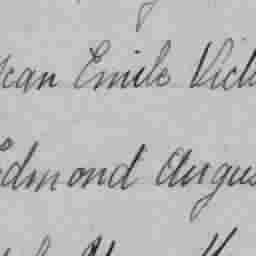 Jean Emile Vict
Edmond Augus